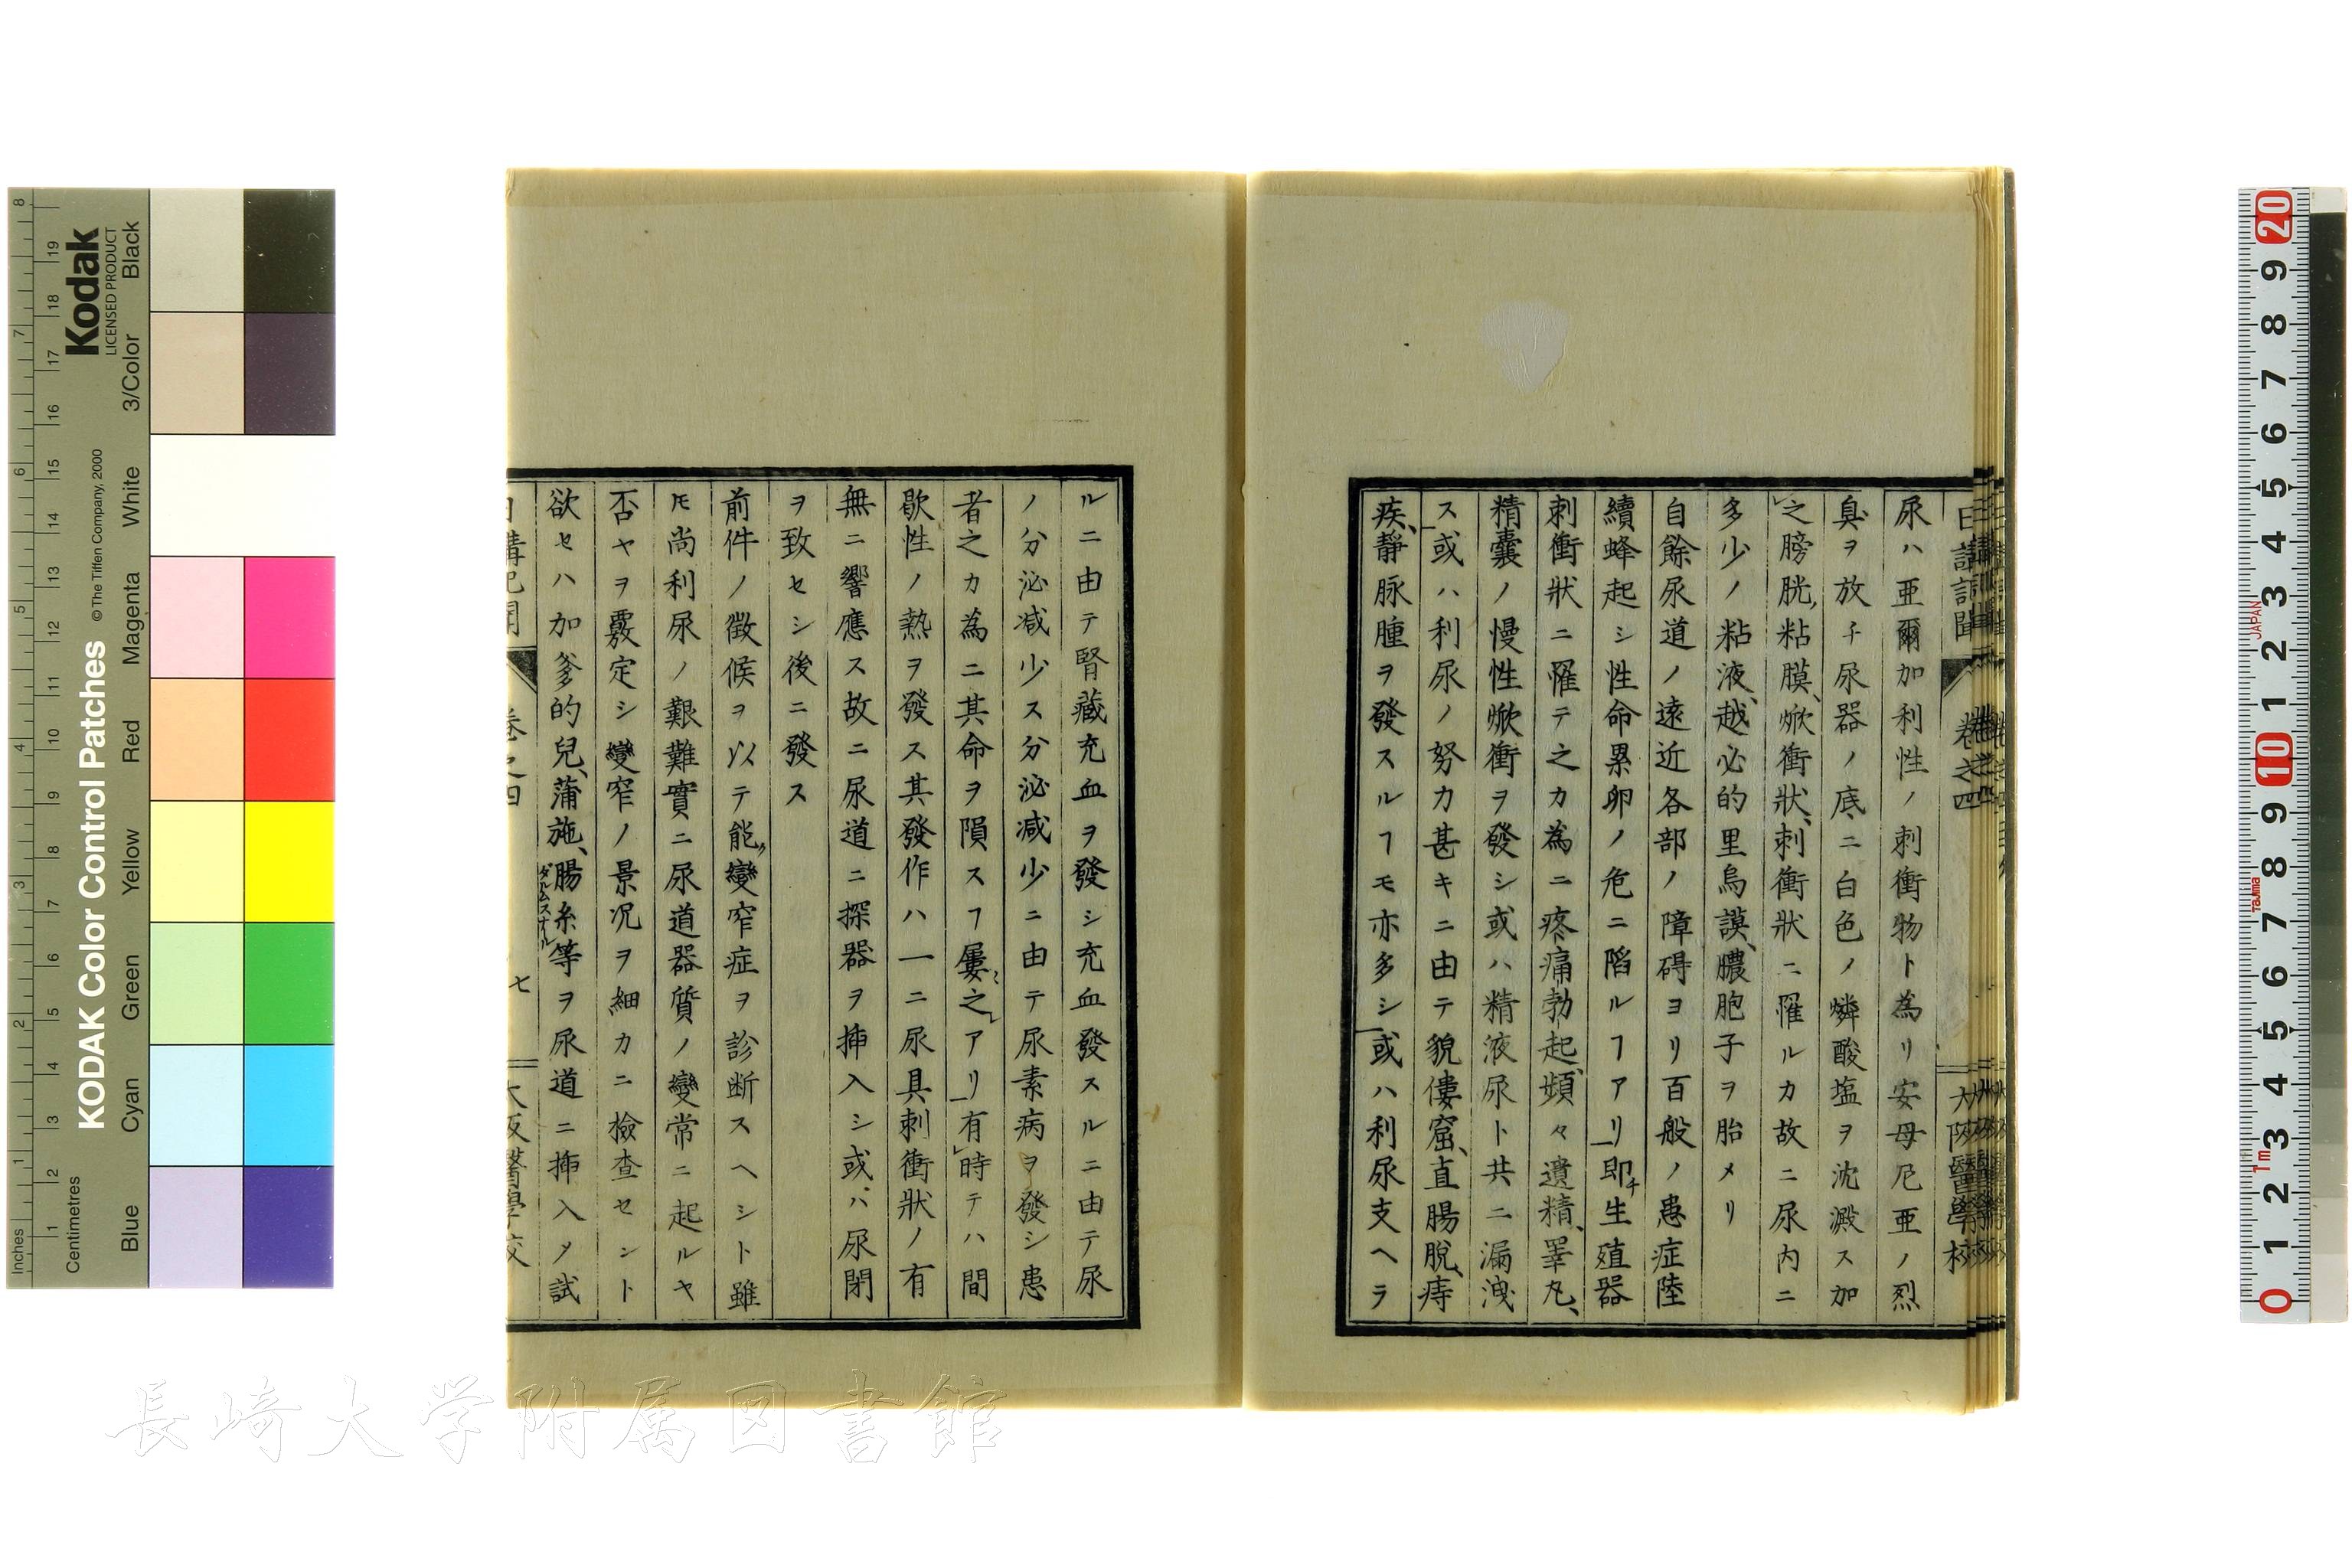 日講記聞 卷之四 大阪醫學校
尿ハ亜爾加利性ノ刺衝物ト為リ安母尼亜ノ烈
臭ヲ放チ尿器ノ底ニ白色ノ燐酸塩ヲ沈澱ス加
之膀胱、粘膜、焮衝狀、刺衝狀ニ罹ルカ故ニ尿内ニ
多少ノ粘液、越必的里烏謨、膿胞子ヲ胎メリ
自餘尿道ノ遠近各部ノ障碍ヨリ百般ノ患症陸
續蜂起シ性命累卵ノ危ニ陷ルヿアリ即チ生殖器
刺衝狀ニ罹テ之カ為ニ疼痛勃起、頻々遺精、睪丸、
精囊ノ慢性焮衝ヲ發シ或ハ精液尿ト共ニ漏洩
ス或ハ利尿ノ努力甚キニ由テ貌僂窟、直腸脫、痔
疾、靜脉腫ヲ發スルヿモ亦多シ或ハ利尿支ヘラ
ルニ由テ腎藏充血ヲ發シ充血發スルニ由テ尿
ノ分泌減少ス分泌減少ニ由テ尿素病ヲ發シ患
者之カ為ニ其命ヲ隕スヿ屢〻之レアリ有時テハ間
歇性ノ熱ヲ發ス其發作ハ一ニ尿具刺衝狀ノ有
無ニ響應ス故ニ尿道ニ探器ヲ挿入シ或ハ尿閉
ヲ致セシ後ニ發ス
前件ノ徵候ヲ以テ能ク變窄症ヲ診断スヘシト雖
𪜈尚利尿ノ艱難實ニ尿道器質ノ變常ニ起ルヤ
否ヤヲ覈定シ變窄ノ景况ヲ細カニ檢查セント
欲セハ加爹的兒、蒲施、腸糸等ヲ尿道ニ挿入メ試
ダルムスナール
日講記聞 卷之四 七 大阪醫學校
KODAK Color Control Patches
©The Tiffen Company, 2000
Kodak
LICENSED PRODUCT
Inches
Centimetres
Blue Cyan Green Yellow Red Magenta White 3/Color Black
JAPAN
Tajima
1m
長崎大学附属図書館